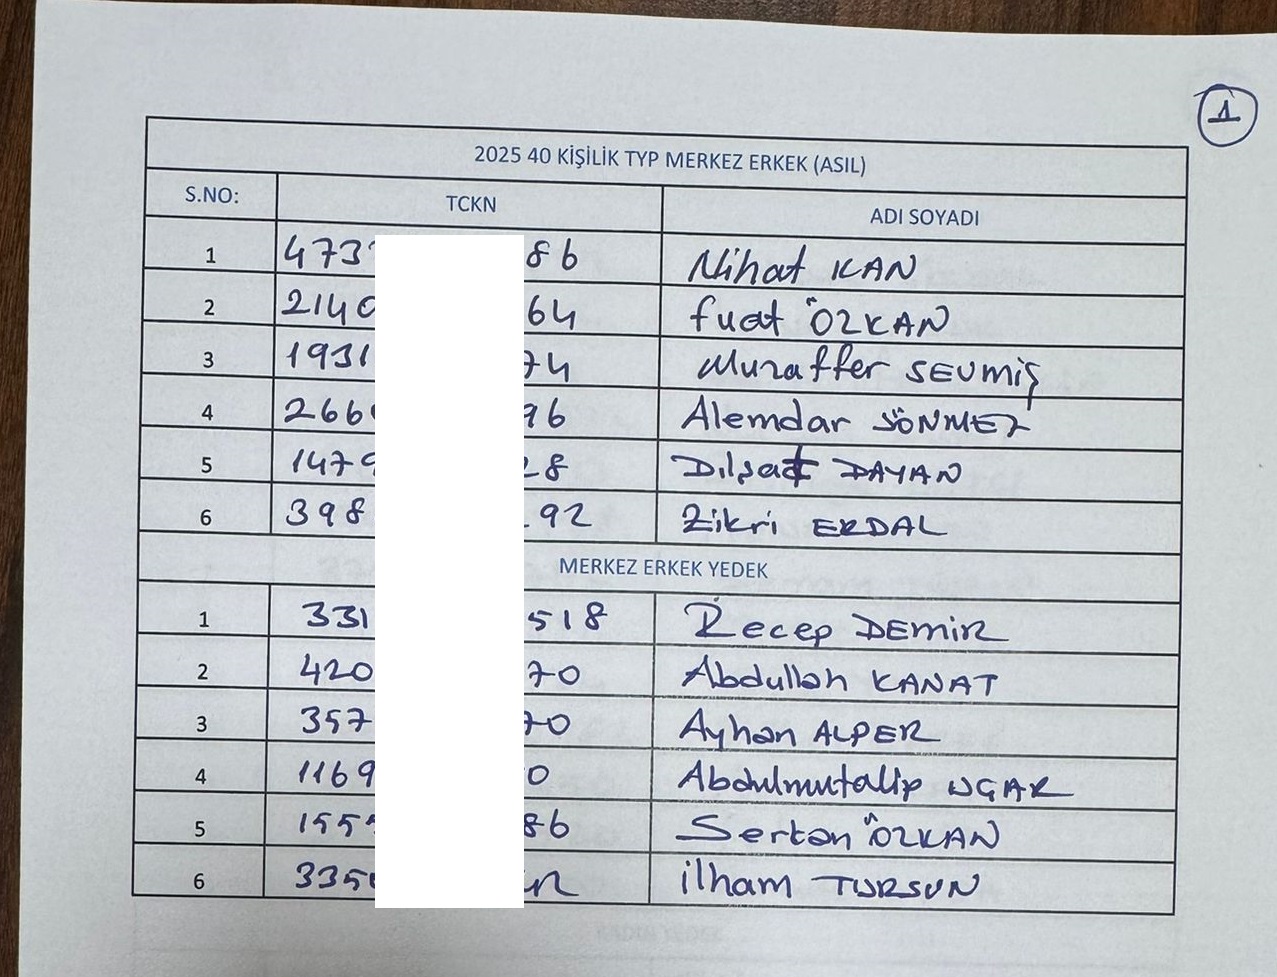 1
2025 40 KİŞİLİK TYP MERKEZ ERKEK (ASIL)
S.NO: TCKN ADI SOYADI
1 473 86 Nihat KAN
2 2140 64 Fuat ÖZKAN
3 1931 74 Muzaffer SEVMİŞ
4 266 96 Alemdar SÖNMEZ
5 1479 28 Dılşat DAYAN
6 398 92 Zikri ERDAL
MERKEZ ERKEK YEDEK
1 331 518 Recep DEMİR
2 420 70 Abdullah KANAT
3 357 70 Ayhan ALPER
4 1169 0 Abdulmutalip UÇAR
5 155 86 Serkan ÖZKAN
6 335 İlham TURSUN